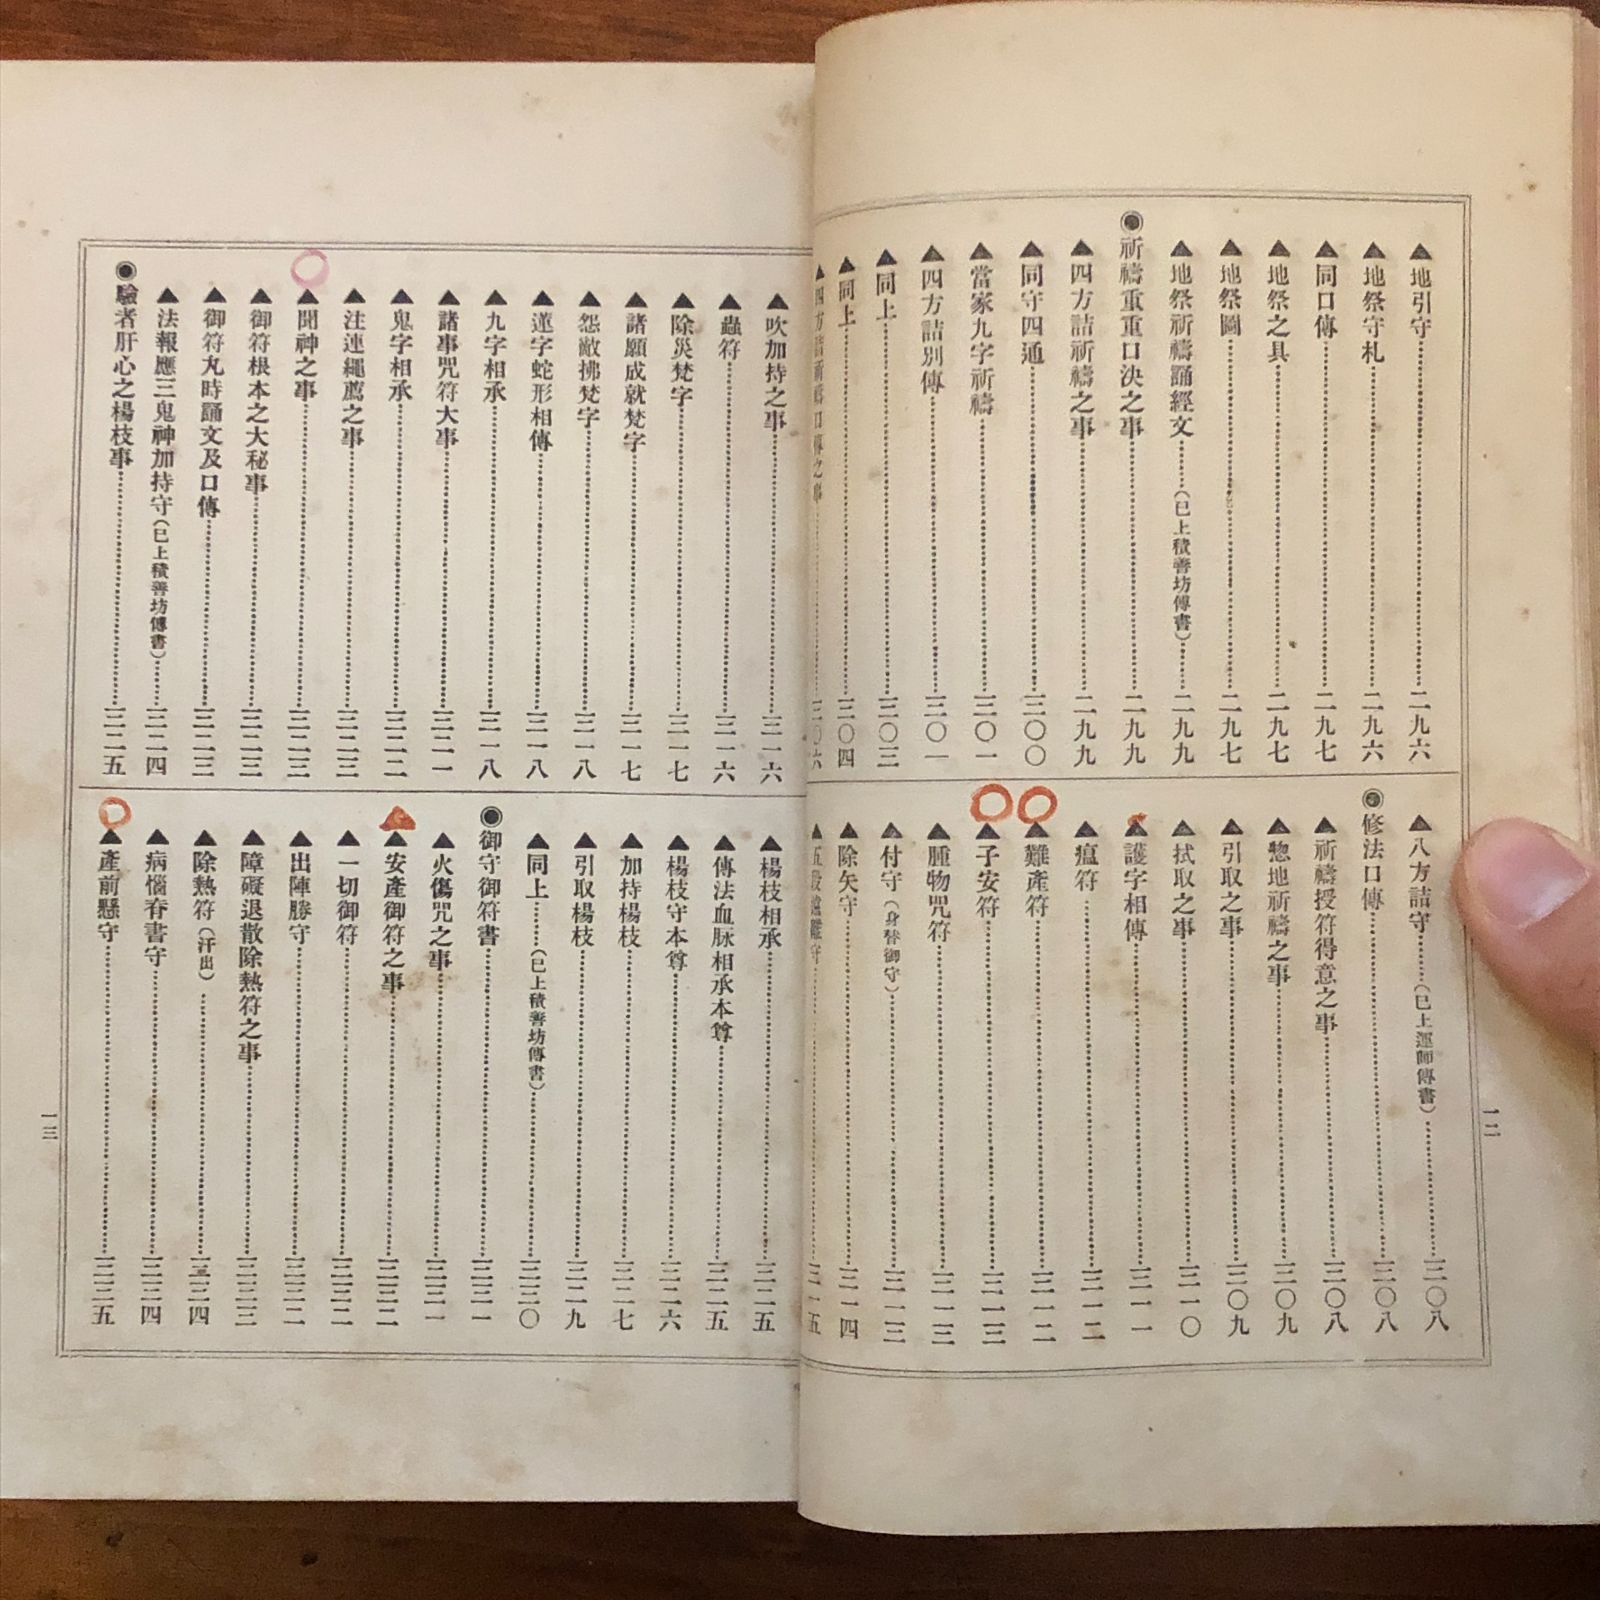 ▲地引守……二九六
▲地祭守札……二九六
▲同口傳……二九七
▲地祭之具……二九七
▲地祭圖……二九七
▲地祭祈禱誦經文……(已上積善坊傳書)……二九九
◉祈禱重重口決之事……二九九
▲四方詰祈禱之事……二九九
▲同守四通……三〇〇
▲當家九字祈禱……三〇一
▲四方詰別傳……三〇一
▲同上……三〇三
▲同上……三〇四
▲四方詰祈禱口傳之事……三〇六
▲八方詰守……(已上運師傳書)……三〇八
◉修法口傳……三〇八
▲祈禱授符得意之事……三〇八
▲惣地祈禱之事……三〇九
▲引取之事……三〇九
▲拭取之事……三一〇
▲護字相傳……三一一
▲瘟符……三一二
▲難產符……三一二
▲子安符……三一三
▲腫物咒符……三一三
▲付守(身替御守)……三一三
▲除矢守……三一四
▲五段遠離守……三一五
一二
▲吹加持之事……三一六
▲蟲符……三一六
▲除災梵字……三一七
▲諸願成就梵字……三一七
▲怨敵拂梵字……三一八
▲蓮字蛇形相傳……三一八
▲九字相承……三一八
▲諸事咒符大事……三二一
▲鬼字相承……三二二
▲注連繩薦之事……三二三
▲聞神之事……三二三
▲御符根本之大秘事……三二三
▲御符丸時誦文及口傳……三二三
▲法報應三鬼神加持守(已上積善坊傳書)……三二四
◉驗者肝心之楊枝事……三二五
▲楊枝相承……三二五
▲傳法血脉相承本尊……三二五
▲楊枝守本尊……三二六
▲加持楊枝……三二七
▲引取楊枝……三二九
▲同上……(已上積善坊傳書)……三三〇
◉御守御符書……三三一
▲火傷咒之事……三三一
▲安產御符之事……三三二
▲一切御符……三三二
▲出陣勝守……三三二
▲障礙退散除熱符之事……三三三
▲除熱符(汗出)……三三四
▲病惱脊書守……三三四
▲產前懸守……三三五
一三